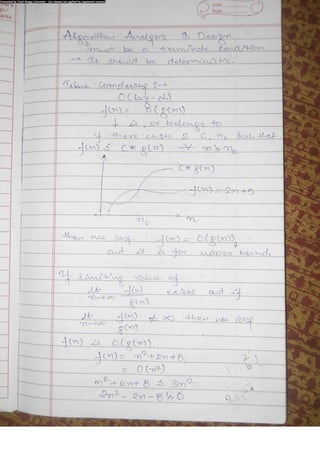 Algorithm Analysis & Design
must be a terminate condition
→ It should be deterministic.
Time Complexity :→
O (big-oh)
f(n) = O(g(n))
↓ is, or belongs to
if there exists 2 C, n₀ such that
f(n) ≤ C * g(n) ∀ n ≥ n₀
C * g(n)
f(n) = 2n+5
n₀ n
then we say f(n) = O(g(n)),
and it is for upper bound.
If limiting value of
lt n→∞ f(n)/g(n) exists and if
lt n→∞ f(n)/g(n) ≠ ∞ then we say
f(n) is O(g(n)).
f(n) = n²+2n+8
= O(n²)
n²+2n+8 ≤ 3n²
2n²-2n-8 ≥ 0